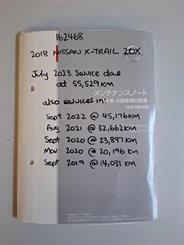 162468
2018 NISSAN X-TRAIL 20X
July 2023 Service done
at 55,529km
also services in:
メンテナンスノート
Sept 2022 @ 45,176km
Aug 2021 @ 32,662km
Sept 2020 @ 23,897km
Mar 2020 @ 20,196 km
Sept 2019 @ 14,031 km